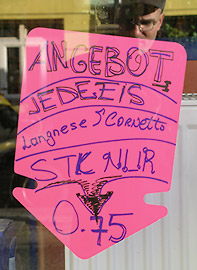 ANGEBOT
JEDES EIS
Langnese & Cornetto
STK NUR
0.75